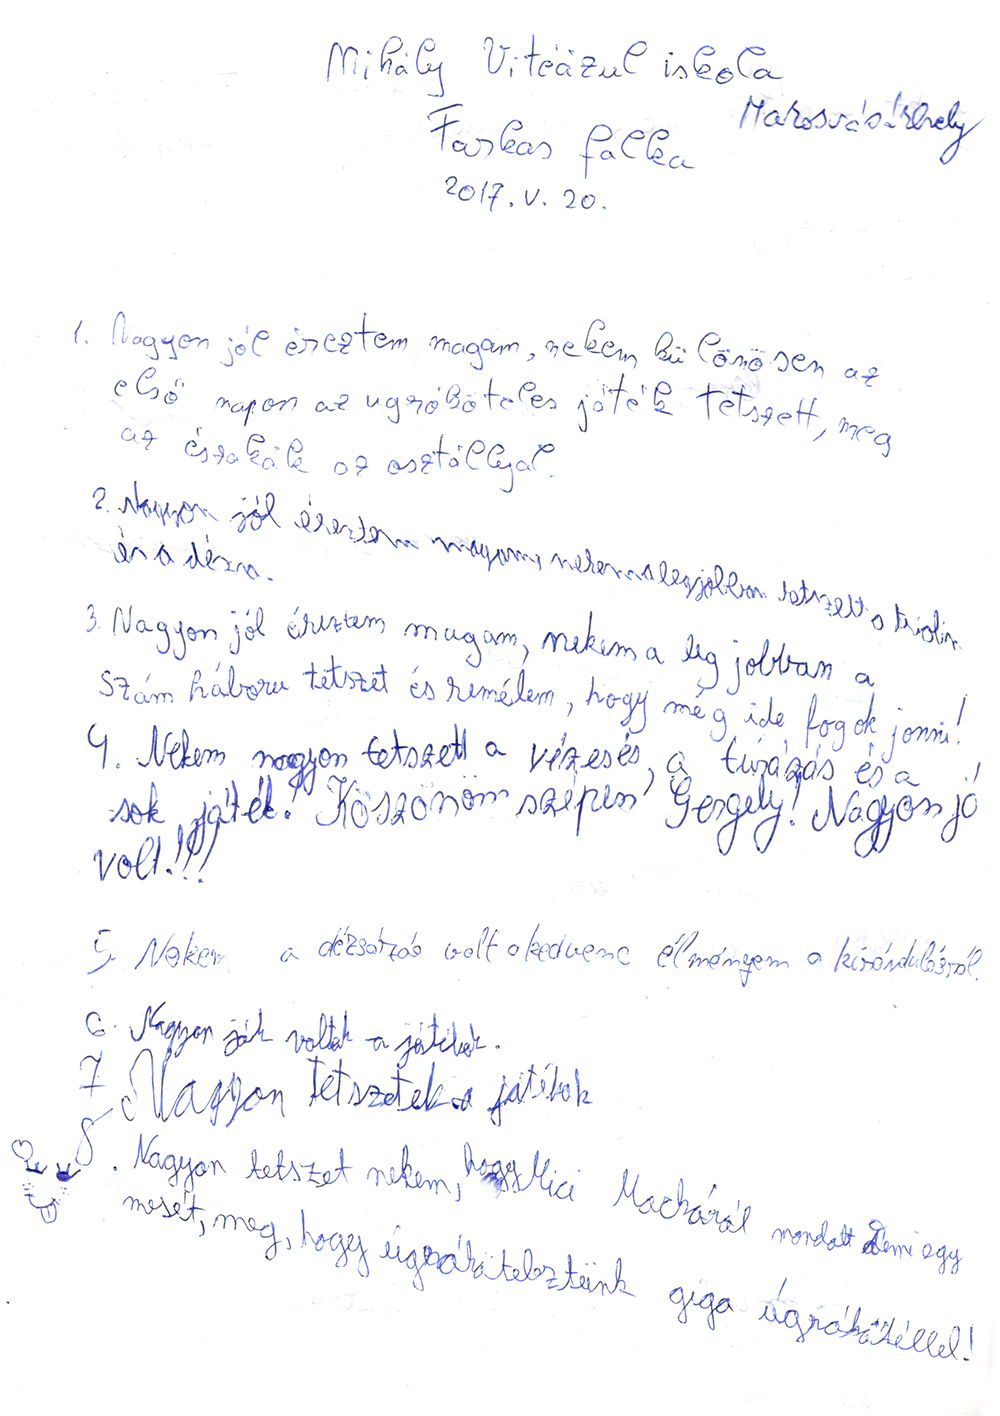 Mihály Viteázul iskola
Marosvásárhely
Farkas falka
2017. V. 20.
1. Nagyon jól éreztem magam, nekem külömösen az
első napon az ugróköteles játék tetszett, meg
az északák az osztályal.
2. Nagyon jól éreztem magam, nekem a legjobban tetszett a
és a dézsa.
3. Nagyon jól éreztem magam, nekem a leg jobban a
Szám háboru tetszet és remélem, hogy még ide fogok jonni!
4. Nekem nagyon tetszett a vízesés, a túrázás és a
sok játék! Köszönöm szépen Gergely! Nagyon jó
volt!!!
5. Nekem a dézsázás volt a kedvenc élményem a kirándulásról.
6. Nagyon jók voltak a játékok.
7 Nagyon tetszetek a játékok
8. Nagyon tetszet nekem, hogy Mici Mackóról mondott Demi egy
mesét, meg, hogy úgróköteleztünk giga úgrókötéllel!